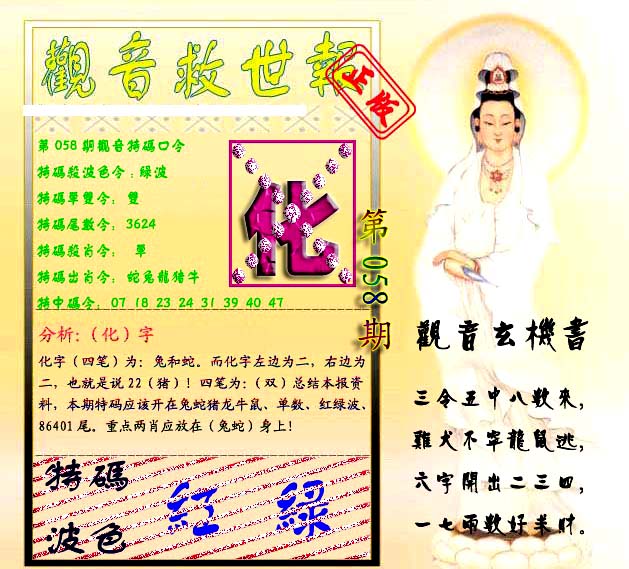 觀音救世報
正版
第058期觀音特碼口令
特碼殺波色令:綠波
特碼單雙令: 雙
特碼尾數令: 3624
特碼殺肖令: 單
特碼出肖令: 蛇兔龍猪牛
特中碼令: 07 18 23 24 31 39 40 47
化
第058期
分析:(化)字
化字(四笔)为:兔和蛇。而化字左边为二,右边为
二,也就是说22(猪)!四笔为:(双)总结本报资
料,本期特码应该开在兔蛇猪龙牛鼠、单数、红绿波、
86401尾。重点两肖应放在(兔蛇)身上!
特碼
波色
紅 綠
觀音玄機書
三令五中八數來,
雞犬不寧龍鼠逃,
六字開出二三四,
一七兩數好羊財。